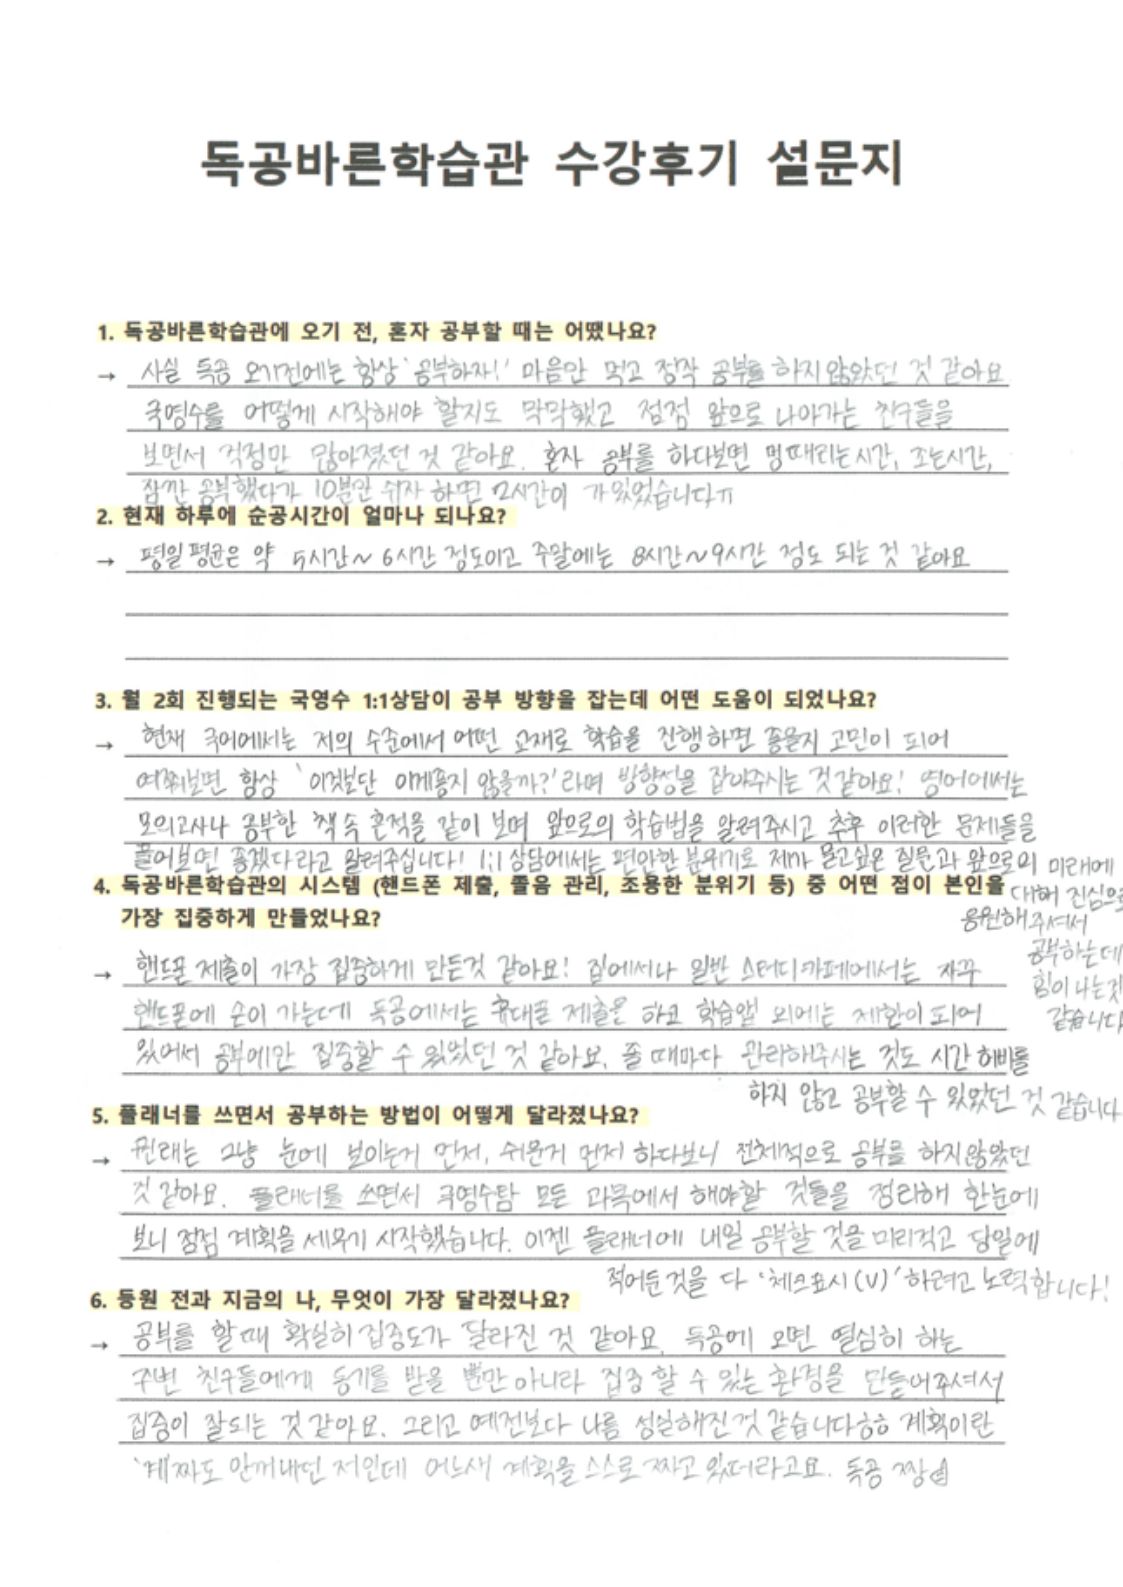 독공바른학습관 수강후기 설문지
1. 독공바른학습관에 오기 전, 혼자 공부할 때는 어땠나요?
→ 사실 독공 오기전에는 항상 '공부하자!' 마음만 먹고 정작 공부를 하지 않았던 것 같아요
국영수를 어떻게 시작해야 할지도 막막했고 점점 앞으로 나아가는 친구들을
보면서 걱정만 많아졌던 것 같아요. 혼자 공부를 하다보면 멍때리는시간, 조는시간,
잠깐 공부했다가 10분만 쉬자 하면 2시간이 가있었습니다ㅠ
2. 현재 하루에 순공시간이 얼마나 되나요?
→ 평일 평균은 약 5시간~6시간 정도이고 주말에는 8시간~9시간 정도 되는 것 같아요
3. 월 2회 진행되는 국영수 1:1상담이 공부 방향을 잡는데 어떤 도움이 되었나요?
→ 현재 국어에서는 저의 수준에서 어떤 교재로 학습을 진행하면 좋을지 고민이 되어
여쭤보면 항상 '이것보단 이게좋지 않을까?'라며 방향성을 잡아주시는 것같아요! 영어에서는
모의고사나 공부한 책 속 흔적을 같이 보며 앞으로의 학습법을 알려주시고 추후 이러한 문제들을
풀어보면 좋겠다라고 알려주십니다! 1:1 상담에서는 편안한 분위기로 제가 묻고싶은 질문과 앞으로의 미래에
대해 진심으로
응원해주셔서
공부하는데
힘이 나는것
같습니다
4. 독공바른학습관의 시스템 (핸드폰 제출, 졸음 관리, 조용한 분위기 등) 중 어떤 점이 본인을
가장 집중하게 만들었나요?
→ 핸드폰 제출이 가장 집중하게 만든것 같아요! 집에서나 일반 스터디카페에서는 자꾸
핸드폰에 손이 가는데 독공에서는 휴대폰 제출을 하고 학습앱 외에는 제한이 되어
있어서 공부에만 집중할 수 있었던 것 같아요. 졸 때마다 관리해주시는 것도 시간 허비를
하지 않고 공부할 수 있었던 것 같습니다
5. 플래너를 쓰면서 공부하는 방법이 어떻게 달라졌나요?
→ 원래는 그냥 눈에 보이는거 먼저, 쉬운거 먼저 하다보니 전체적으로 공부를 하지않았던
것 같아요. 플래너를 쓰면서 국영수탐 모든 과목에서 해야할 것들을 정리해 한눈에
보니 점점 계획을 세우기 시작했습니다. 이젠 플래너에 내일 공부할 것을 미리적고 당일에
적어둔것을 다 '체크표시(V)'하려고 노력합니다!
6. 등원 전과 지금의 나, 무엇이 가장 달라졌나요?
→ 공부를 할 때 확실히 집중도가 달라진 것 같아요. 독공에 오면 열심히 하는
주변 친구들에게 동기를 받을 뿐만 아니라 집중 할 수 있는 환경을 만들어주셔서
집중이 잘되는 것 같아요. 그리고 예전보다 나름 성실해진것 같습니다ㅎㅎ 계획이란
'계'짜도 안꺼내던 저인데 어느새 계획을 스스로 짜고 있더라고요. 독공 짱